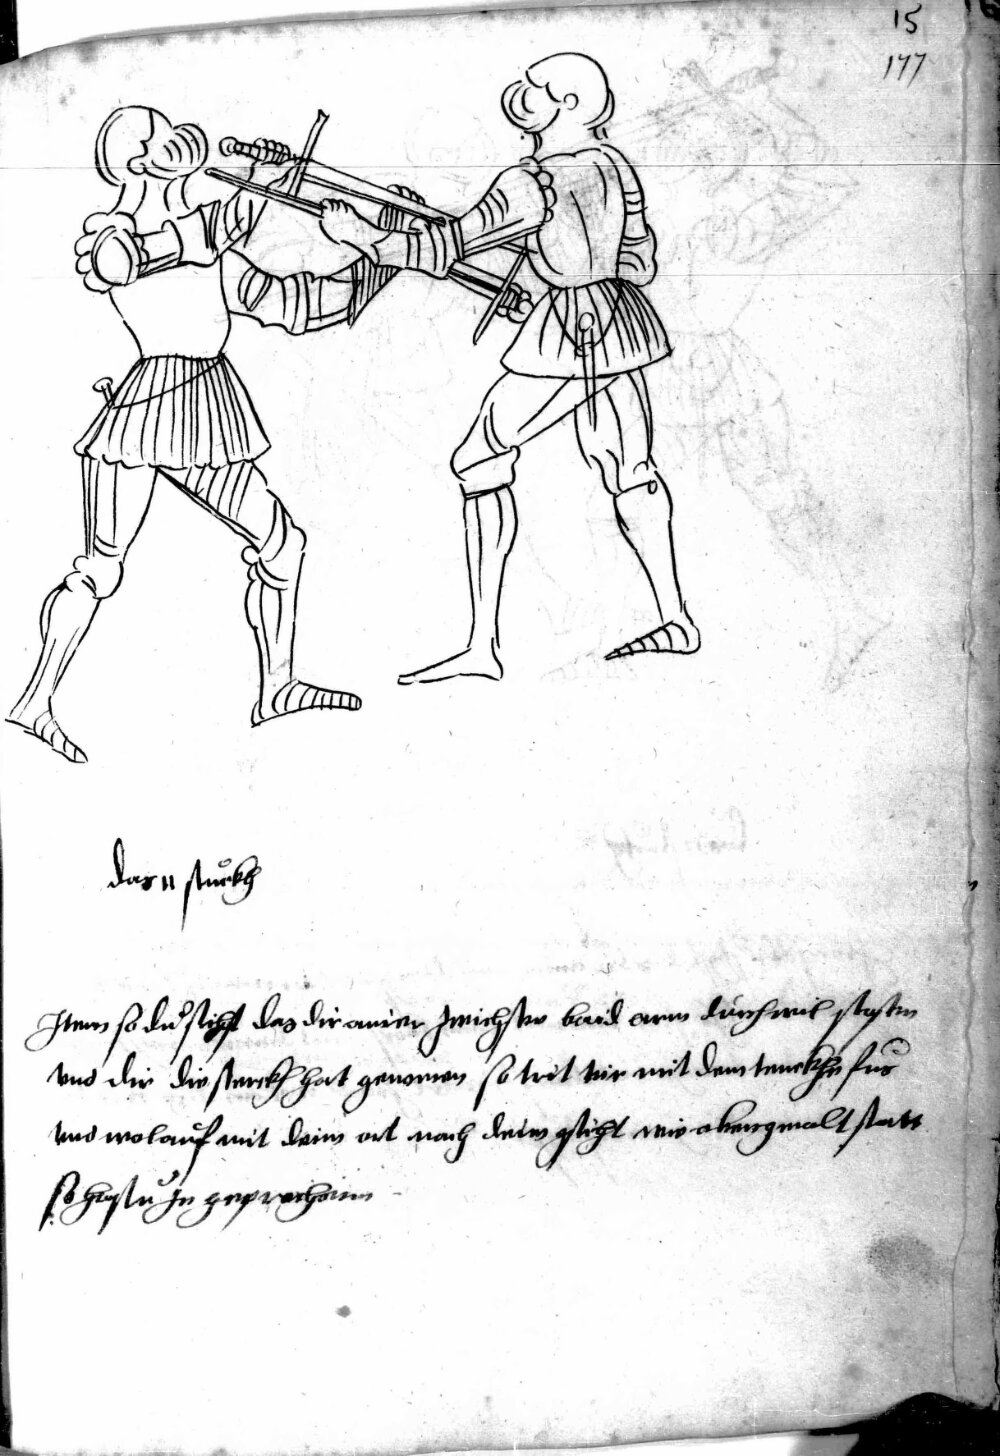 15
177
das 11 stuckh
Item so du sichst das dir ainer zwischn baid arm durch wil stossn
und dir die sterckh hat genomen so trit mit dem tenckhn fus
und wol auf mit deim ort nach deim gsicht wie oben gmalt statt
so hastu In geprochenn